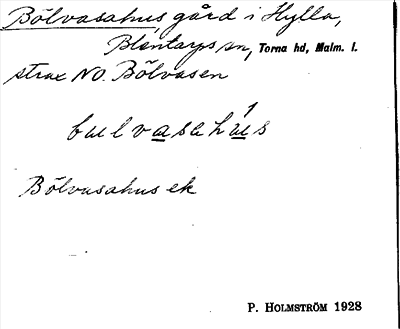 Bölvasahus, gård i Hylla,
Blentarps sn, Torna hd, Malm. l.
strax NO. Bölvasen
bulvasahús
Bölvasahus ek
P. HOLMSTRÖM 1928